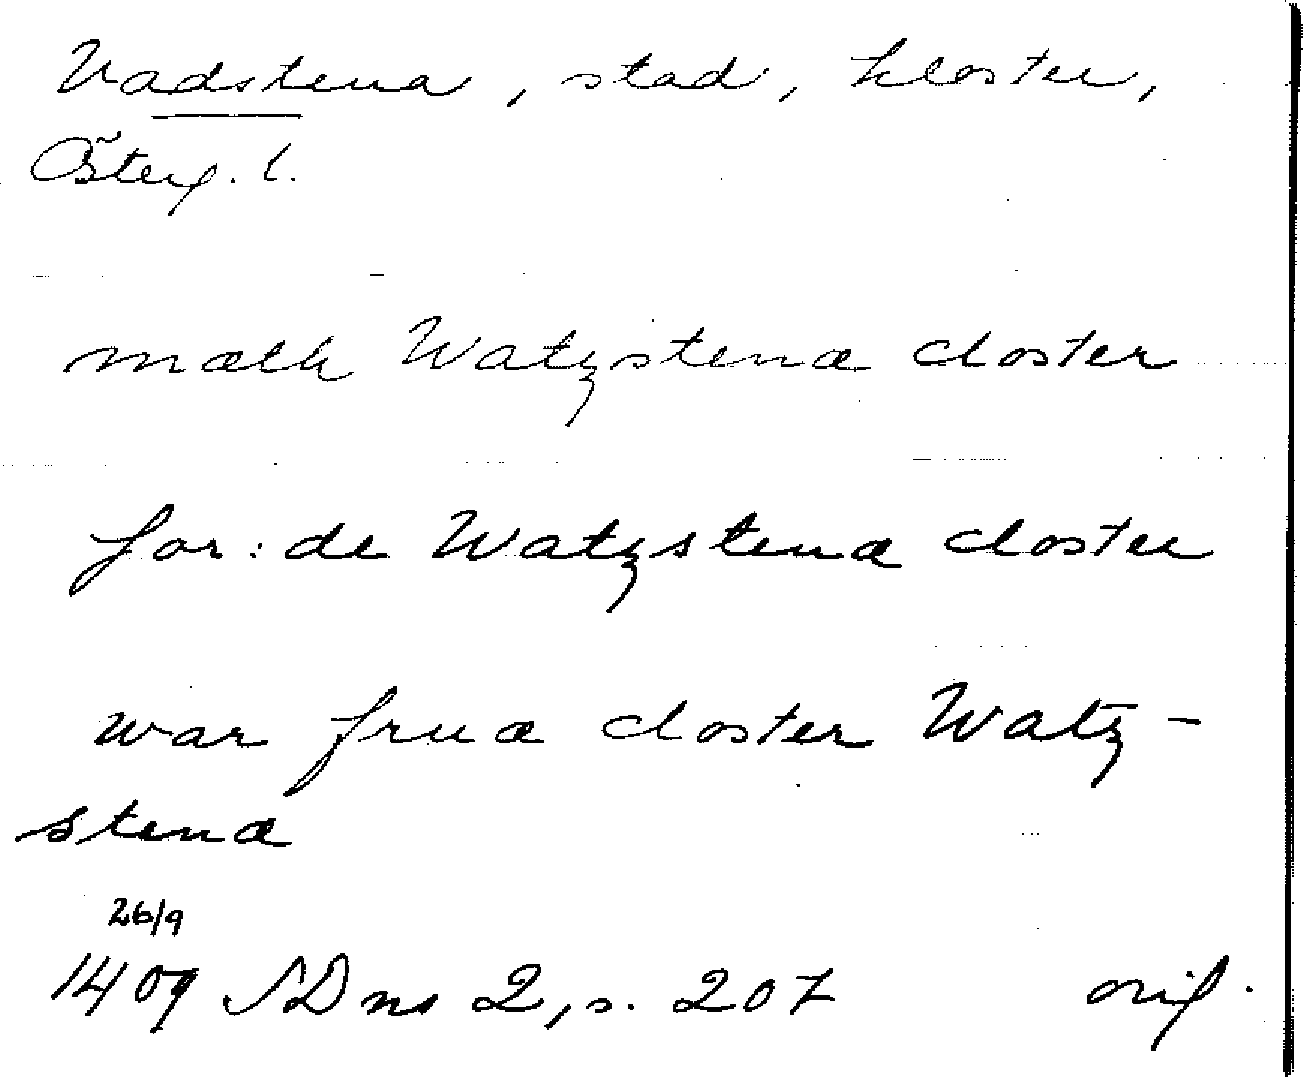 Vadstena, stad, kloster,
Österg. l.
mællæ Watzstenæ closter
for: de Watzstenæ closter
war fruæ closter Watz-
stenæ
26/9
1409 SD ns 2, s. 207 orig.